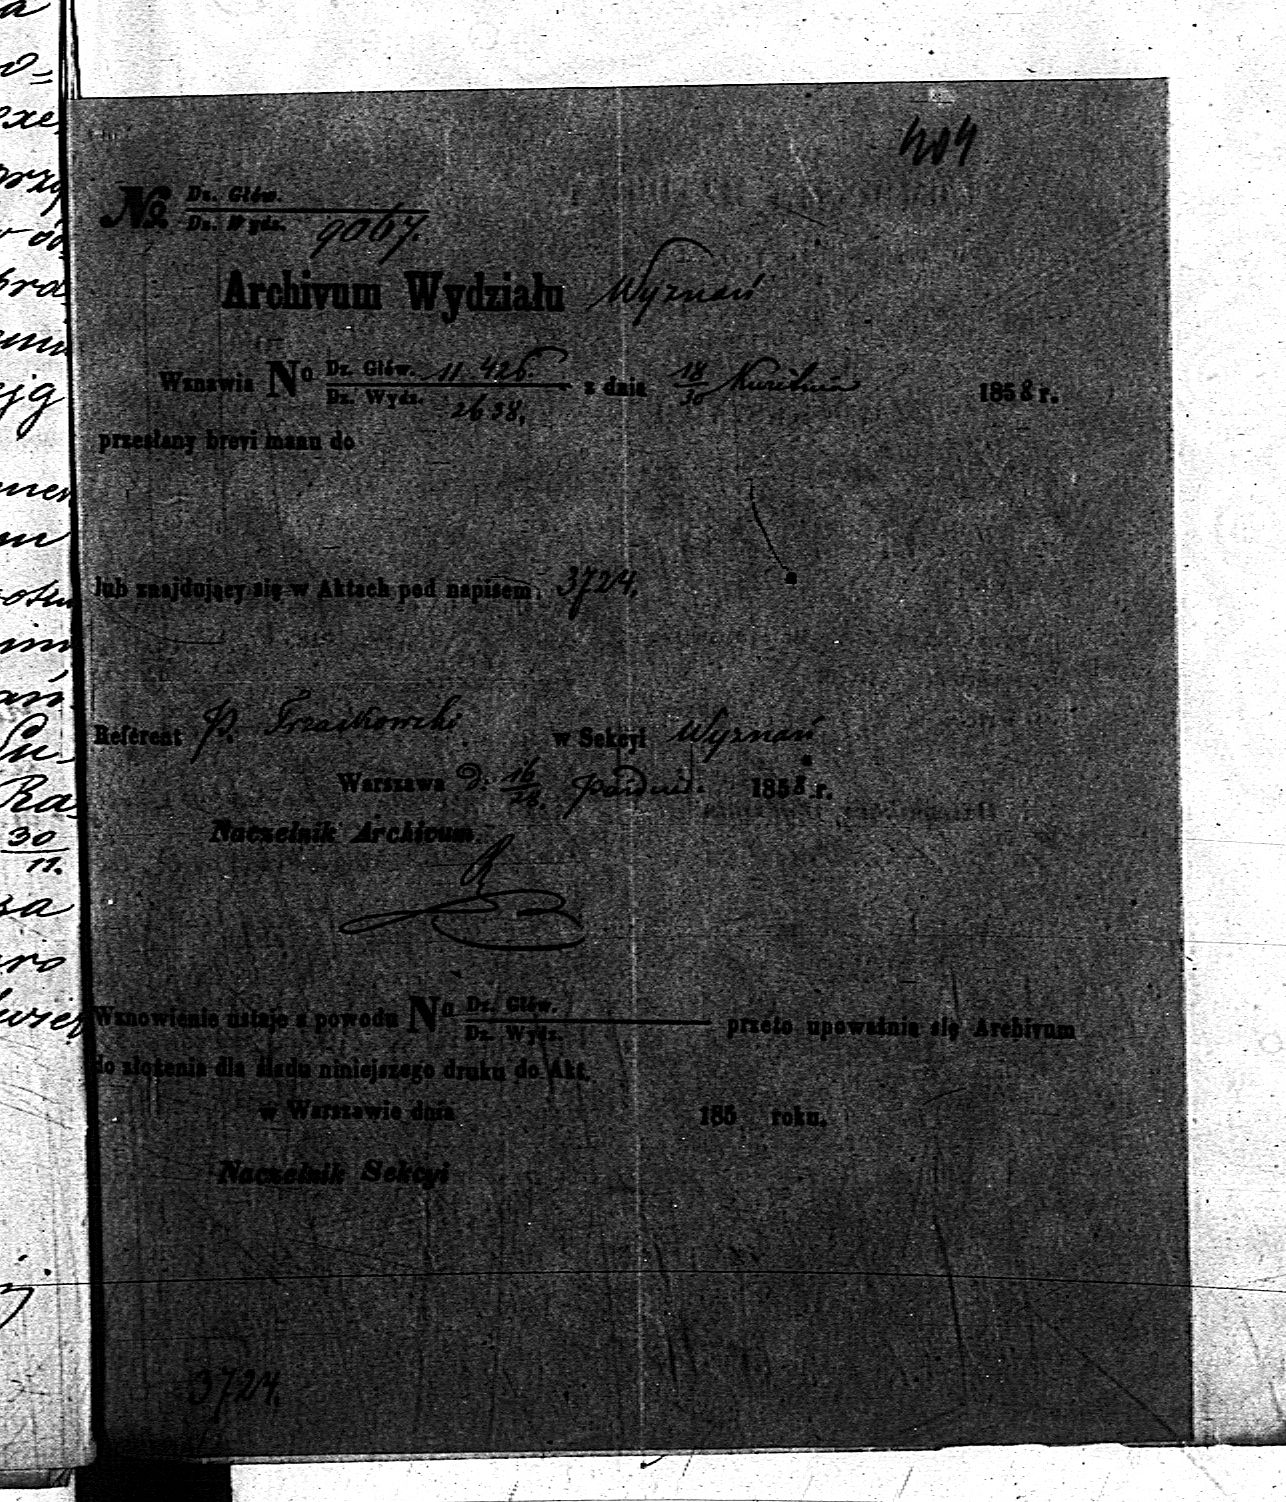 404
№ Dz. Głów.
Dz. Wydz. 9067.
Archivum Wydziału Wyznań
Wznawia No Dz. Głów. 11.426. z dnia 18/30 Kwietnia 1858 r.
Dz. Wydz. 2638.
przesłany brevi manu do
lub znajdujący się w Aktach pod napisem. 3724.
Referent P. w Sekcyi Wyznań
Warszawa d. 16/28 Paźdz. 1858 r.
Naczelnik Archivum.
Wznowienie ustaje z powodu No Dz. Głów.
Dz. Wydz. przeto upoważnia się Archivum
do złożenia dla śladu niniejszego druku do Akt.
w Warszawie dnia 185 roku.
Naczelnik Sekcyi
3724.